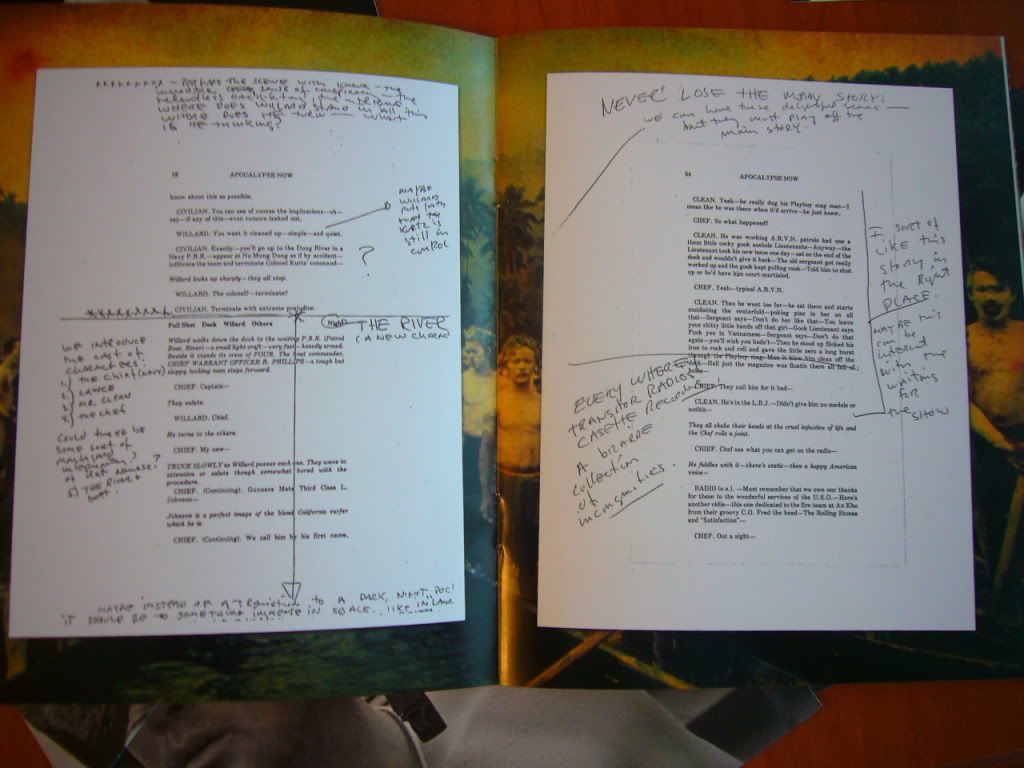 PERHAPS THE SCENE WITH
SENSE OF CONSPIRACY — THE
RELENTLESS
WHERE DOES WILLARD STAND IN ALL THIS
WHERE DOES HE TURN — WHAT
IS HE THINKING?
18 APOCALYPSE NOW
know about this as possible.
CIVILIAN. You can see of course the implications—uh—
say—if any of this—even rumors leaked out,
WILLARD. You want it cleaned up—simple—and quiet.
CIVILIAN. Exactly—you'll go up to the Dung River in a
Navy P.B.R.—appear at Nu Mung Dung as if by accident—
infiltrate the team and terminate Colonel Kurtz' command—
Willard looks up sharply—they all stop.
WILLARD. The colonel?—terminate?
CIVILIAN. Terminate with extreme prejudice.
MAYBE
WILLARD
THAT
KURTZ IS
still in
control
?
Full Shot Dock Willard Others Night
THE RIVER
(A NEW
Willard walks down the dock to the waiting P.B.R. (Patrol
Boat, River)—a small light craft—very fast—heavily armed.
Beside it stands its crew of FOUR. The boat commander,
CHIEF WARRANT OFFICER R. PHILLIPS—a tough but
sloppy looking man steps forward.
CHIEF. Captain—
They salute.
WILLARD. Chief.
He turns to the others.
CHIEF. My new—
TRUCK SLOWLY as Willard passes each one. They wave to
attention or salute though somewhat bored with the
procedure.
CHIEF. (Continuing). Gunners Mate Third Class L.
Johnson—
Johnson is a perfect image of the blond California surfer
which he is.
CHIEF. (Continuing). We call him by his first name,
WE INTRODUCE
the CAST OF
CHARACTERS:
1.) the CHIEF (NAVY)
2.) LANCE
3.) MR. CLEAN
4.) the CHEF
Could there be
some sort of
of that
5) THE RIVER +
BOAT.
MAYBE INSTEAD OF A TRANSITION TO A DARK, NIGHT, DOC!
IT SHOULD BE TO SOMETHING IMMENSE IN SCALE.. LIKE IN
NEVER LOSE THE MAIN STORY!
WE can have these delightful scenes —
but they must PLAY off the
MAIN STORY.
54 APOCALYPSE NOW
CLEAN. Yeah—he really dug his Playboy mag man—I
mean like he was there when it'd arrive—he just knew.
CHEF. So what happened?
CLEAN. He was working A.R.V.N. patrols had one a
them little cocky gook asshole Lieutenants—Anyway—the
Lieutenant took his new issue one day—sat on the end of the
dock and wouldn't give it back—The old sergeant got really
worked up and the gook kept pulling rank—Told him to shut
up or he'd have him court-martialed.
CHEF. Yeah—typical A.R.V.N.
CLEAN. Then he went too far—he sat there and starts
mutilating the centerfold—poking pins in her an all
that—Sergeant says—Don't do her like that—You leave
your shitty little hands off that girl—Gook Lieutenant says
Fuck you in Vietnamese—Sergeant says—Don't do that
again—you'll wish you hadn't—Then he stood up flicked his
iron to rock and roll and gave the little zero a long burst
through the Playboy mag. Man it blew him clean off the
dock—Hell just the magazine was floatin there all full of
holes—
CHIEF. They nail him for it bad—
CLEAN. He's in the L.B.J.—Didn't give him no medals or
nothin—
They all shake their heads at the cruel injustice of life and
the Chef rolls a joint.
CHIEF. Chef see what you can get on the radio—
He fiddles with it—there's static—then a happy American
voice—
RADIO (o.s.). —Must remember that we owe our thanks
for these to the wonderful services of the U.S.O.—Here's
another oldie—this one dedicated to the fire team at An Kho
from their groovy C.O. Fred the head—The Rolling Stones
and "Satisfaction"—
CHEF. Out a sight—
EVERYWHERE
TRANSITOR RADIOS
CASETTE RECORDERS
A bizarde
collection
of
incongruities.
I sort of
Like this
story in
the Right
PLACE.
MAYBE this
can be
intercut
with the
waiting
FOR
the SHOW